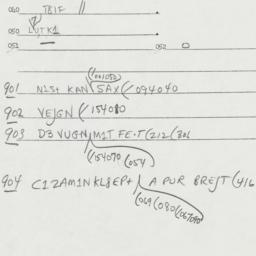 040 TBIF //
050 LUTK1
051 052
(001050)
901 N1ST KAN SAX (094040
902 VEJGN (154010
903 D3 VUGN MIT FE.T (212 (306
(154070 (054
904 C1ZAM1NKL8EP+ A PUR BREJT (416
(069 (080 (067040